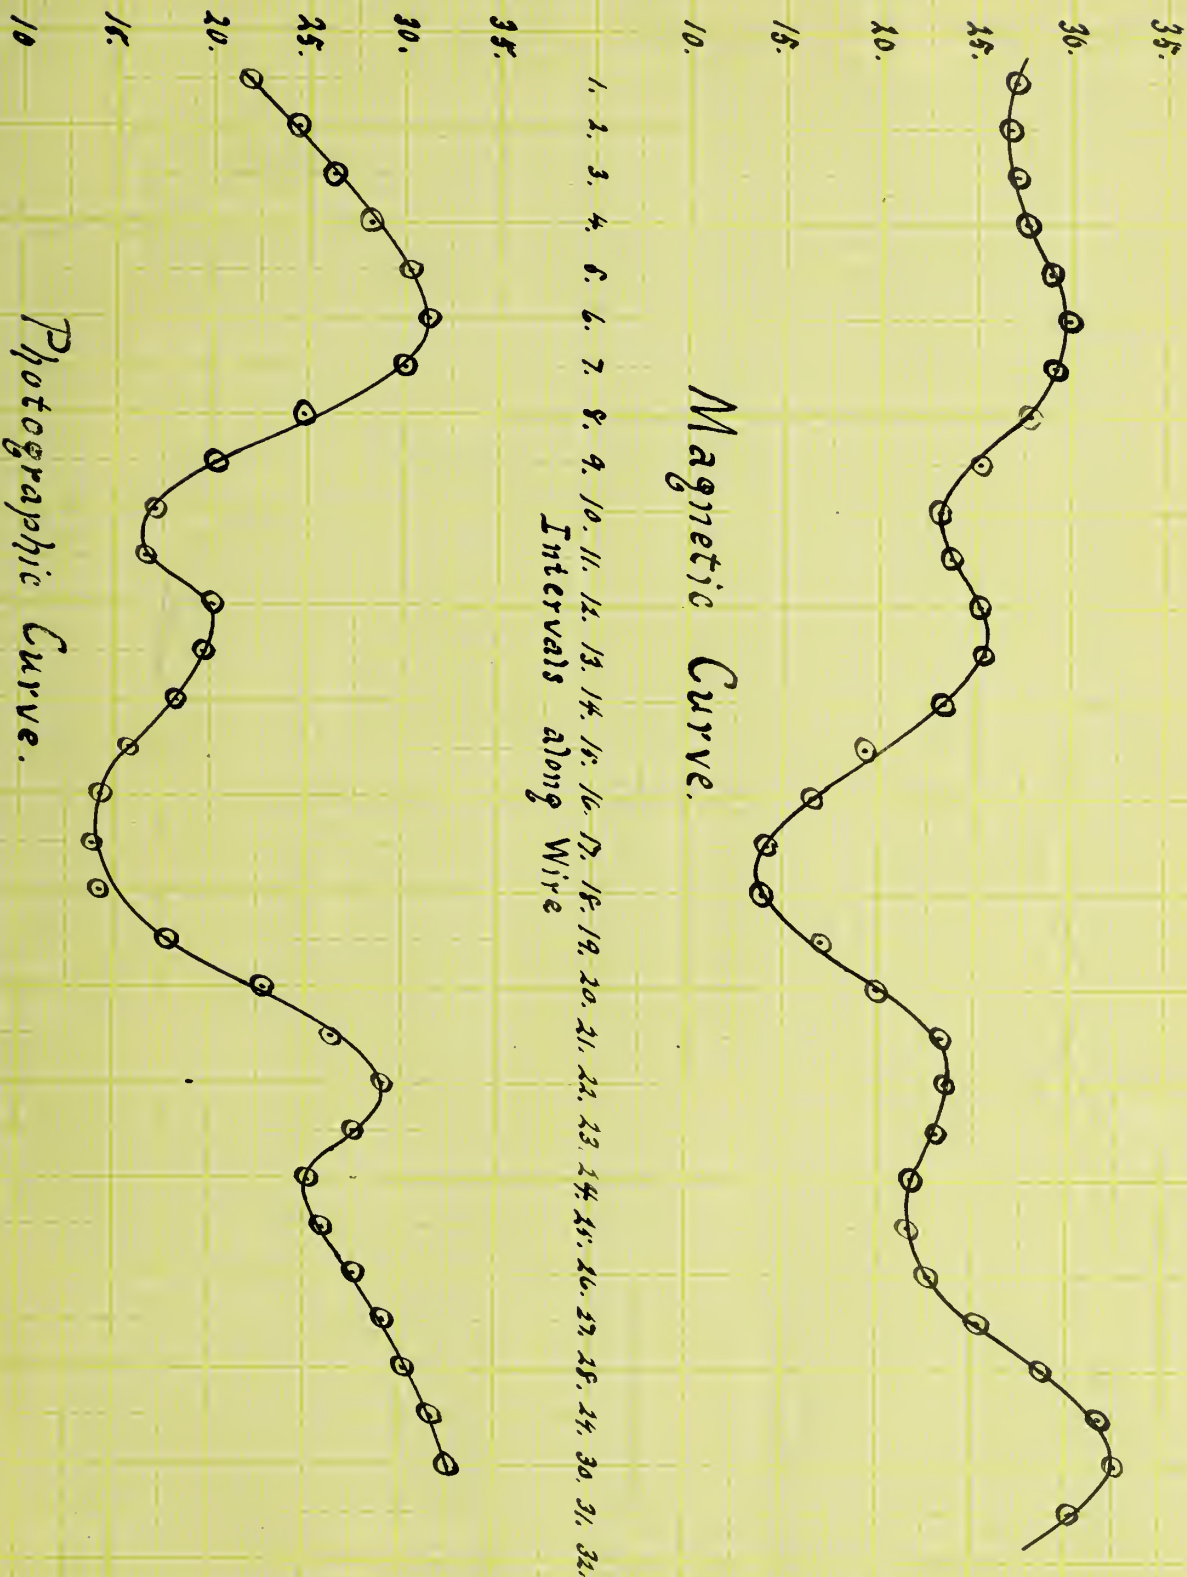 35.
30.
25.
20.
15.
10.
Magnetic Curve.
1. 2. 3. 4. 5. 6. 7. 8. 9. 10. 11. 12. 13. 14. 15. 16. 17. 18. 19. 20. 21. 22. 23. 24. 25. 26. 27. 28. 29. 30. 31. 32.
Intervals along Wire
35.
30.
25.
20.
15.
10
Photographic Curve.